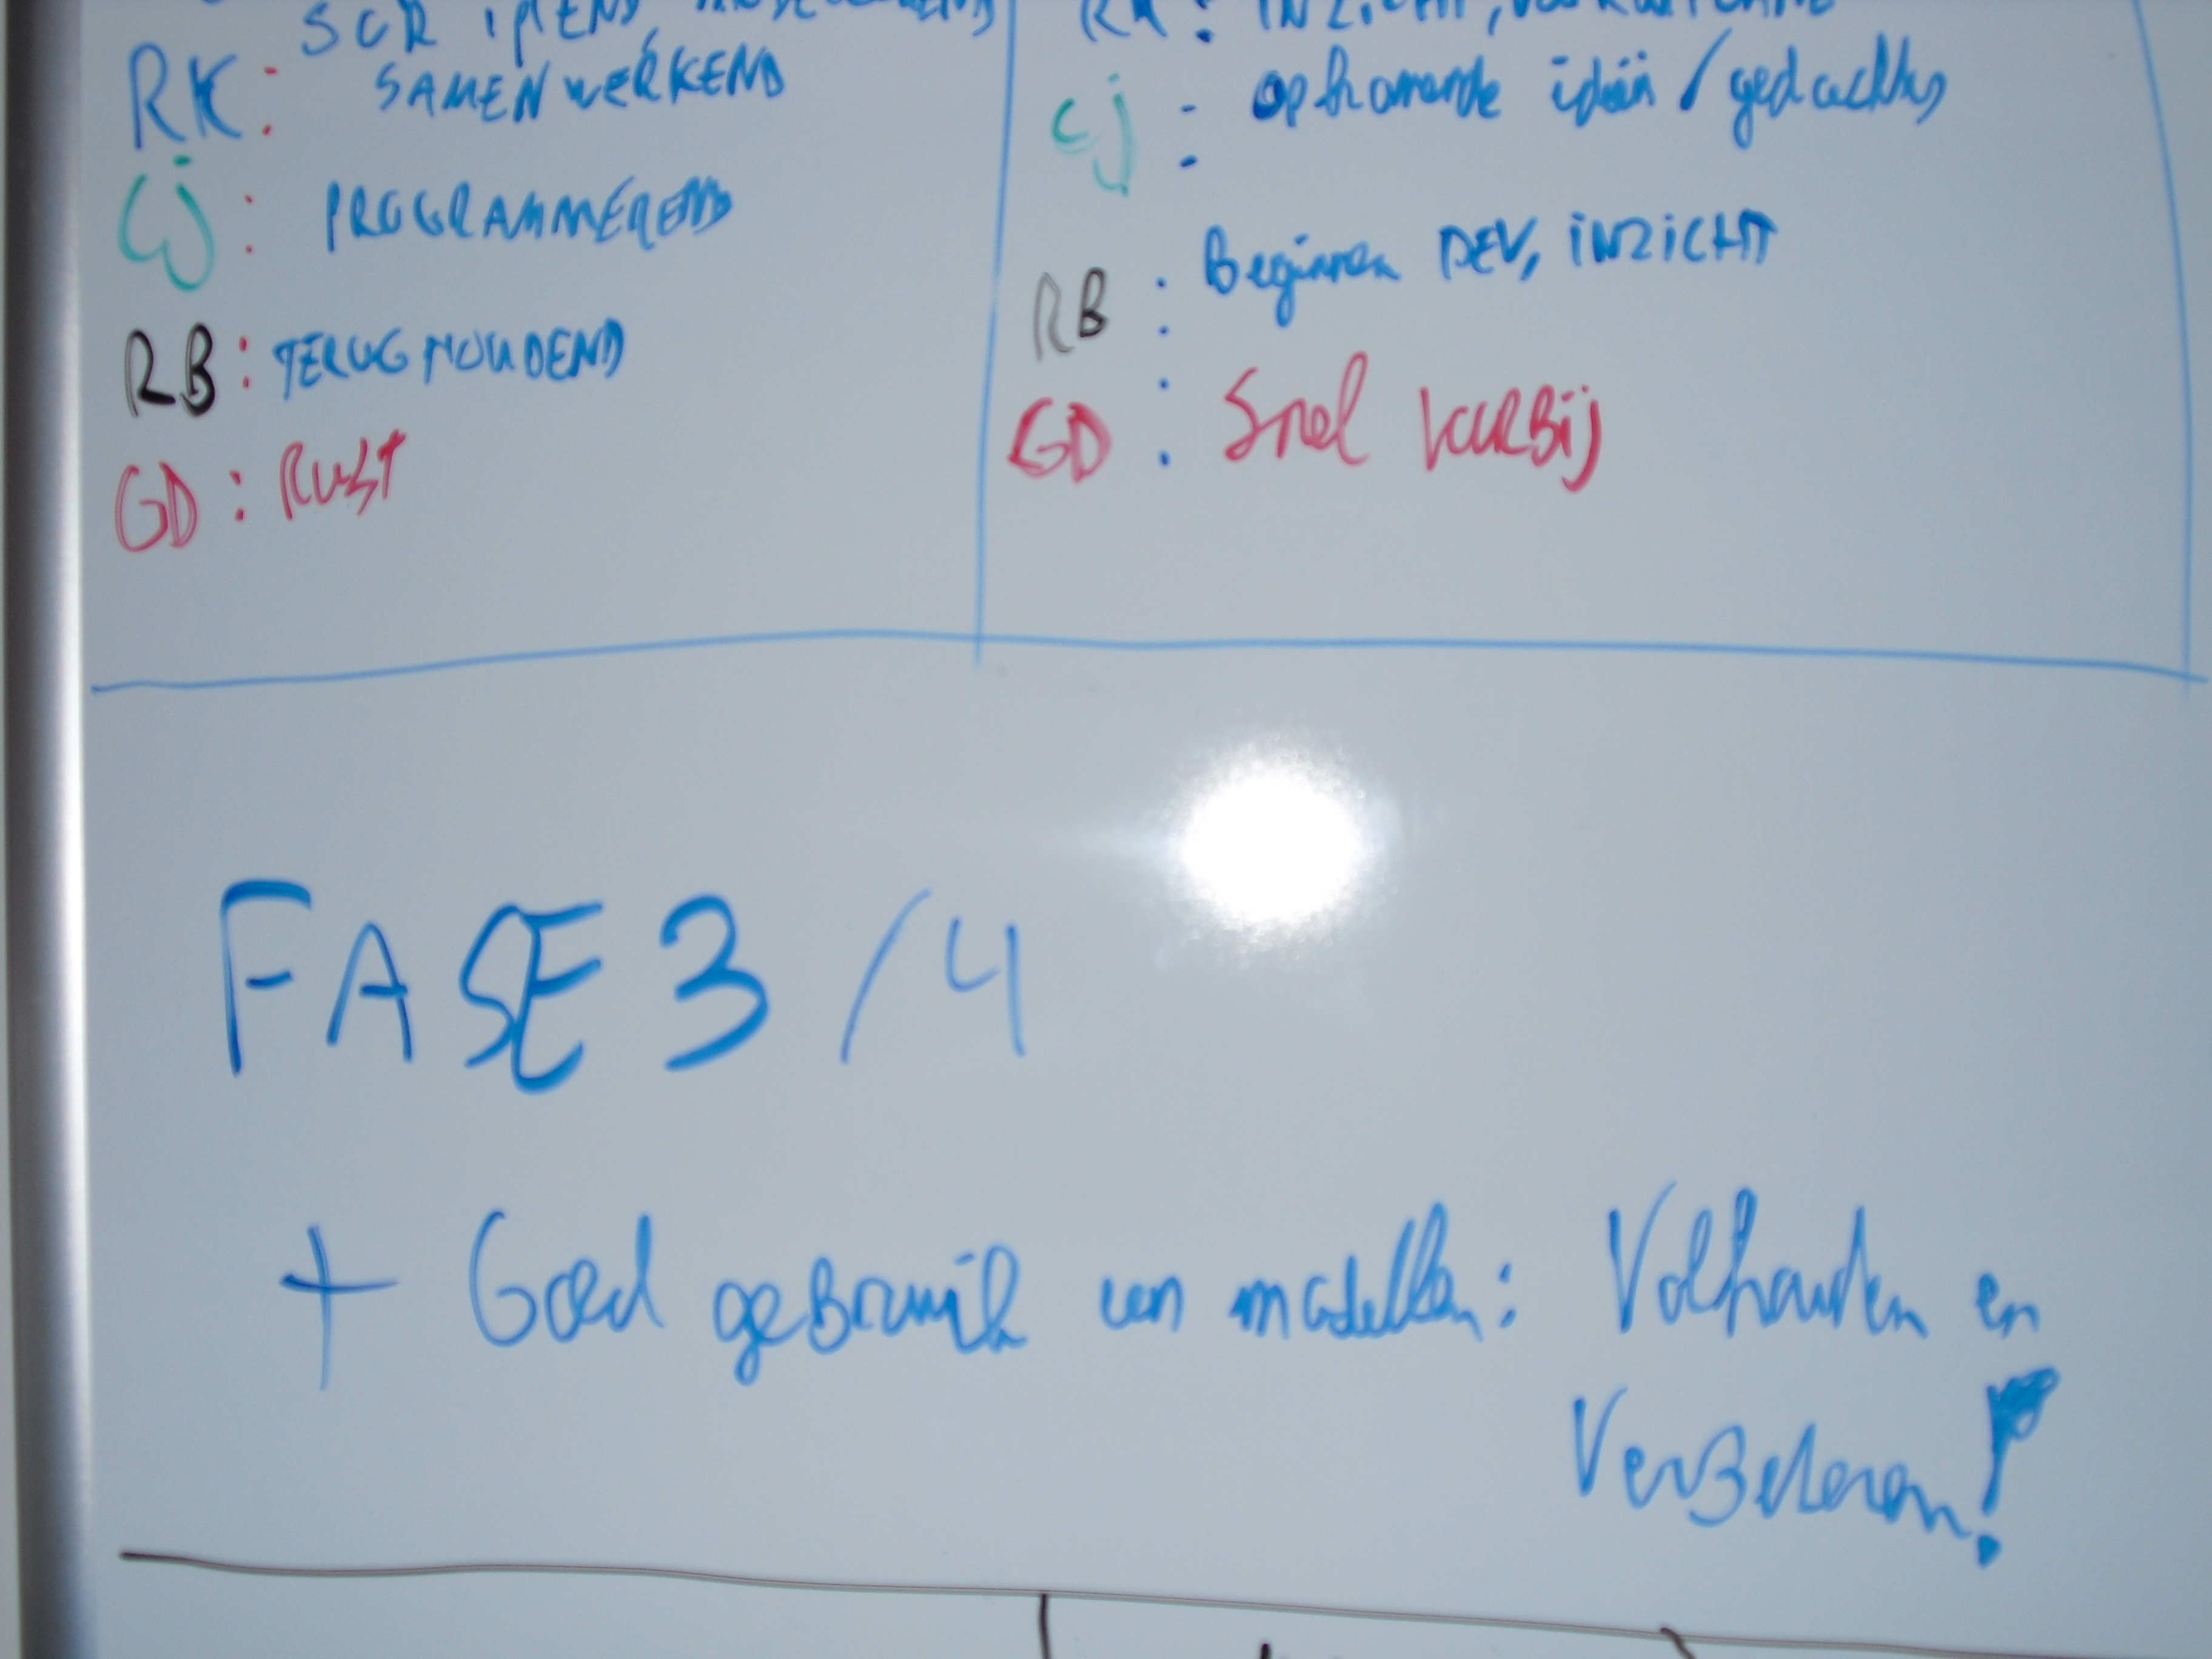 SCRIPEND,
RK: SAMENWERKEND
CJ: PROGRAMMEREND
RB: TERUGHOUDEND
GD: RUST
RK: INZICHT,
CJ: opkomende ideën / gedachtes
RB: Beginnen DEV, INZICHT
GD: Snel VOORBij
FASE 3/4
+ Goed gebruik van modellen: Volhouden en
Verbeteren!